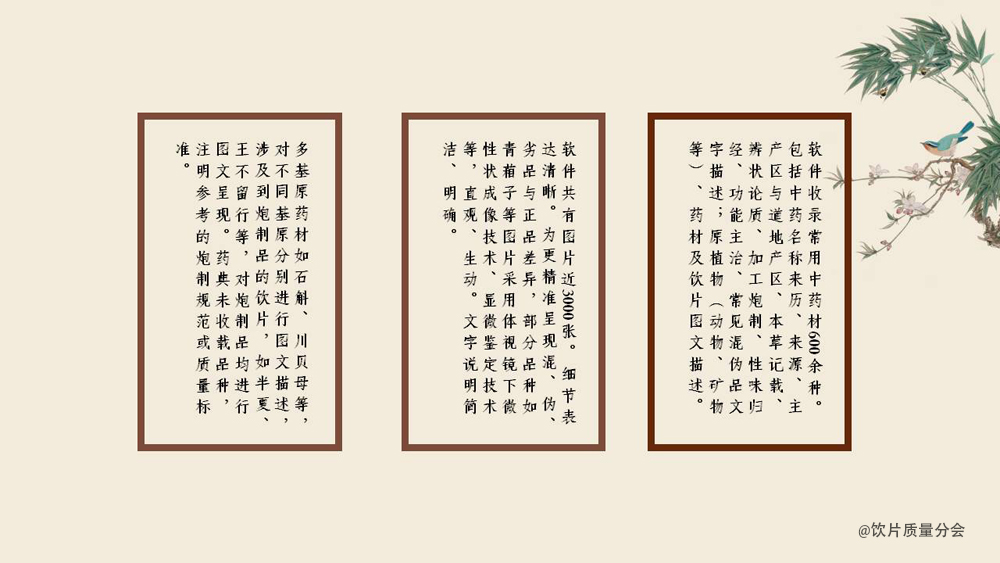 软件收录常用中药材600余种。
包括中药名称来历、来源、主
产区与道地产区、本草记载、
辨状论质、加工炮制、性味归
经、功能主治、常见混伪品文
字描述；原植物（动物、矿物
等）、药材及饮片图文描述。
软件共有图片近3000张。细节表
达清晰。为更精准呈现混、伪、
劣品与正品差异，部分品种如
青葙子等图片采用体视镜下微
性状成像技术、显微鉴定技术
等，直观、生动。文字说明简
洁、明确。
多基原药材如石斛、川贝母等，
对不同基原分别进行图文描述，
涉及到炮制品的饮片，如半夏、
王不留行等，对炮制品均进行
图文呈现。药典未收载品种，
注明参考的炮制规范或质量标
准。
@饮片质量分会